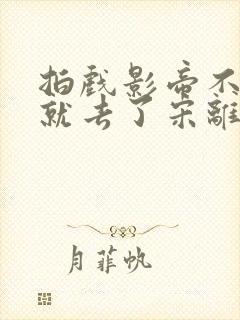 拍戏影帝不
就去了宋離
月菲帆